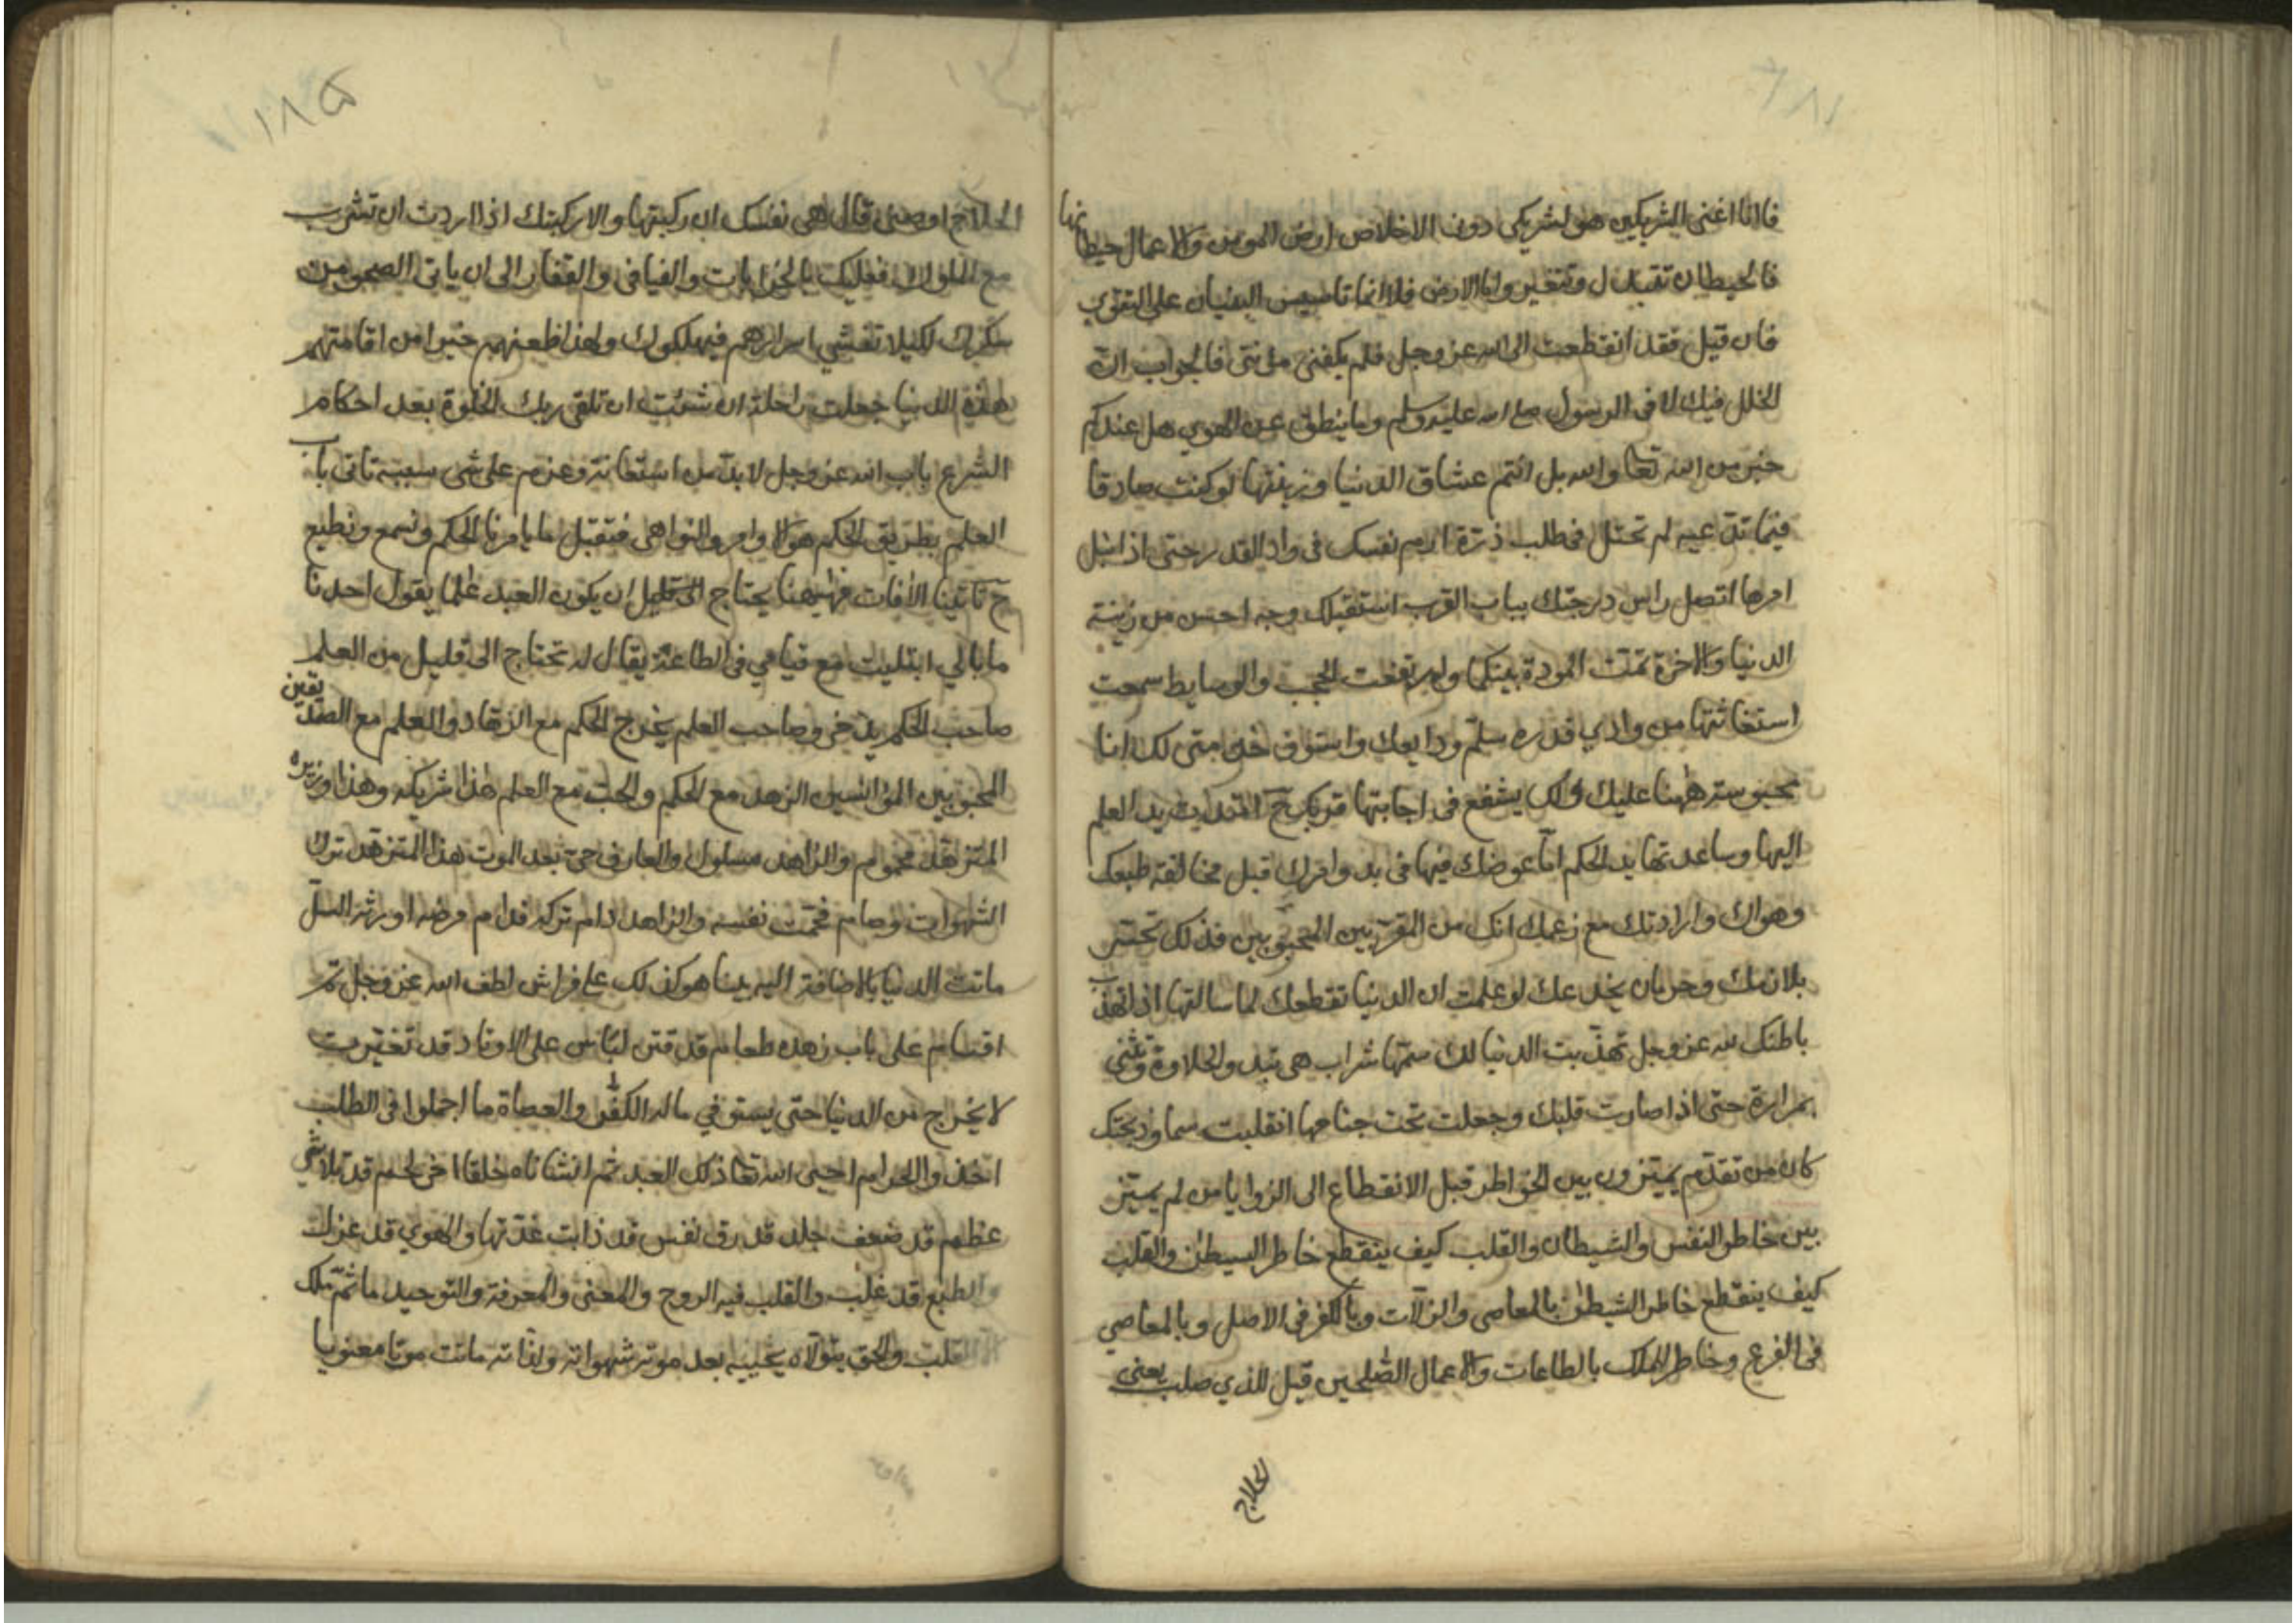 فانا اغنى الشريكين هو لشريكي دون الاخلاص ارض المومن والاعمال حيطانها
فالحيطان تتبدل وتتغير واما الارض فلا انما تاسيس البنيان على التقوى
فان قيل فقد انقطعت الى الله عز وجل فلم يكفني مؤنتي فالجواب انّ
الخلل فيك لا في الرسول صلى الله عليه وسلم وما ينطق عن الهوي هل عندكم
خبر من الله تعا والله بل انتم عشاق الدنيا وزينتها لو كنت صادقا
فيما تدّعيه لم تحتل في طلب ذرّة ارم نفسك في واد القدر حتى اذا
امرها اتصل راس درجتك بباب القرب استقبلك وجه احسن من زينة
الدنيا والاخرة تمّت المودة بينكما وارتفعت الحجب والوسايط سمعت
استغاثتها من وادي قدره سلّم ودايعك واستوف مني لك انا
اليها وساعدتها يد الحكم امّا عوضك فيها في بدو امرك قبل مخالفة طبعك
وهواك وارادتك مع زعمك انك من المقربين المحبوبين فذلك
وحرمان يخدعك لو علمت ان الدنيا تقطعك لما سالتها اذا تهذّب
باطنك لله عز وجل تهذّبت الدنيا لك سمّها شراب هي والحلاوة وتثني
بمرارة حتى اذا صارت قلبك وجعلت تحت جناحها انقلبت سما وذبحتك
كان من تقدّم يميّزون بين الخواطر قبل الانقطاع الى الزوايا من لم يميّز
بين خاطر النفس والشيطان والقلب كيف ينقطع خاطر الشيطن والقلب
كيف ينقطع خاطر الشيطن بالمعاصي والزلّات وبالكفر في الاصل وبالمعاصي
في الفرع وخاطر الملك بالطاعات والاعمال الصّلحين قيل للذي صلب يعني
الحلاج
١٨٥
الحلاج اوصني قال هي نفسك ان ركبتها والا ركبتك اذا اردت ان تشرب
مع الملوك فعليك بالخرابات والفيافي والقفار الى ان ياتي الصحو من
سكرك لكيلا تفشي اسرارهم فيهلكوك ولهذا ظعنهم خيرا من اقامتهم
هذه الدنيا جعلت راحلة ان شئت ان تلقى ربك الخلوة بعد احكام
الشرع باب الله عز وجل لا بدّ من استعانة وعزم على شى سببه تاتي باب
العلم بطريق الحكم هو الاوامر والنواهي فتقبل ما يامرنا الحكم ونسمع ونطيع
ح تاتينا الافات فههنا يحتاج الى قليل ان يكون العبد علما يقول احدنا
ما بالي ابتليت مع قيامي في الطاعة يقال له تحتاج الى قليل من العلم
صاحب الحكم وصاحب العلم يخرج الحكم مع الزهاد والعلم مع الصدّيقين
المحبوبين المؤانسين الزهد مع الحكم والحب مع العلم هذا شريكه وهذا وزيره
المتزهد محموم والزاهد مسلول والعارف حيّ بعد الموت هذا المتزهد ترك
الشهوات وصام فحمّت نفسه والزاهد دام تركه فدام مرضه اورثه السلّ
ماتت الدنيا بالاضافة اليه بينا هو كذلك على فراش لطف الله عز وجل
على باب زهده طعام قد لباس على الاوتاد قد تغيرت
لا يخرج من الدنيا حتى يستوفي ماله الكفار والعصاة ما اجملوا في الطلب
اخذوا الحرام احيى الله تعا ذلك العبد ثم انشاناه خلقا اخر لحم قد تلاشي
عظم قد ضعف جلد قد رق نفس قد ذابت والهوي قد عزلت
والطبع قد غلب والقلب فيه الروح والمعنى والمعرفة والتوحيد ما ثمّ ملك
القلب والحق يتولّاه يحييه بعد موته شهواته ولذاته ماتت موتا معنويا